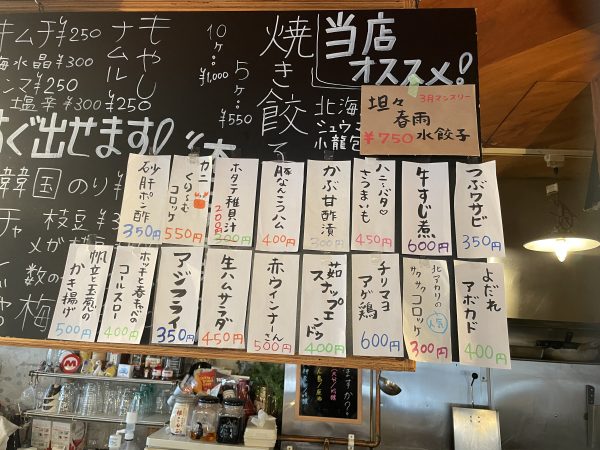 当店
オススメ!
3月マンスリー
坦々
春雨
水餃子
¥750
焼き餃子
10ヶ… ¥1,000
5ヶ… ¥550
北海
シュウ
小龍包
もやし
ナムル
¥250
キムチ¥250
海水晶¥300
¥250
塩辛¥300
すぐ出せます!
韓国のり¥
枝豆¥3
つぶワサビ
350円
牛すじ煮
600円
ハニーバタ♡
さつまいも
450円
かぶ甘酢漬
300円
豚なんこつハム
400円
ホタテ稚貝汁
200円
カニ
くり〜む
コロッケ
550円
砂肝ポン酢
350円
よだれ
アボカド
400円
北アカリの
サクサクコロッケ
300円
チリマヨ
アゲ鶏
600円
茹
スナップエンドウ
400円
赤ウィンナーさん
500円
生ハムサラダ
450円
アジフライ
350円
ホッキと春キャベの
コールスロー
400円
帆立と玉葱の
かき揚げ
500円